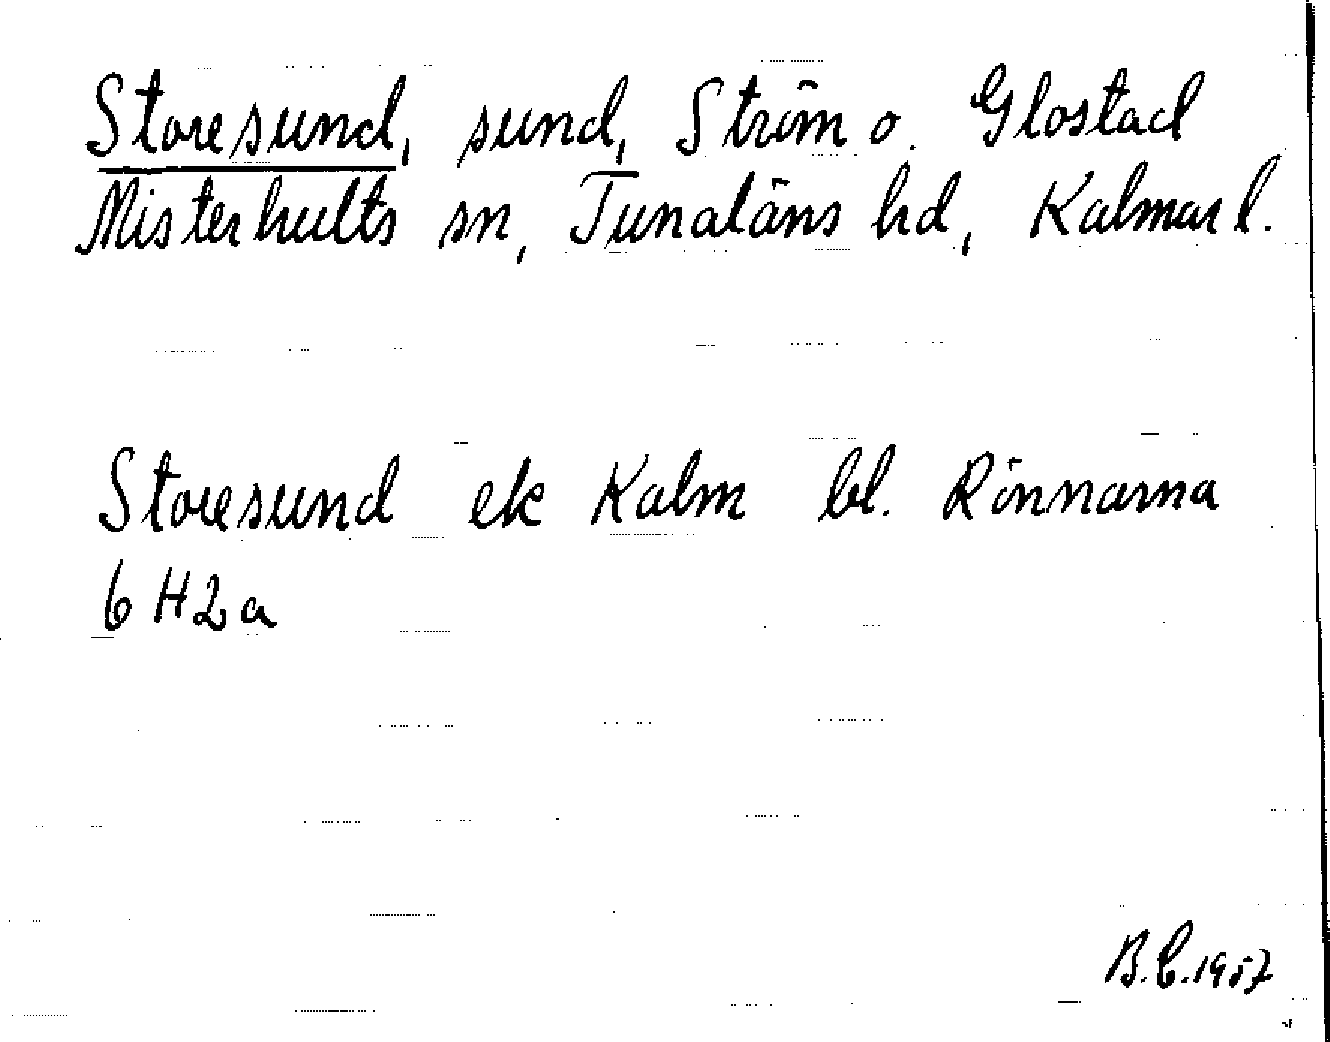 Storesund, sund, Ström o. Glostad
Misterhults sn, Tunaläns hd, Kalmar l.
Storesund ek Kalm bl. Rönnarna
6 H2a
B.C.1957